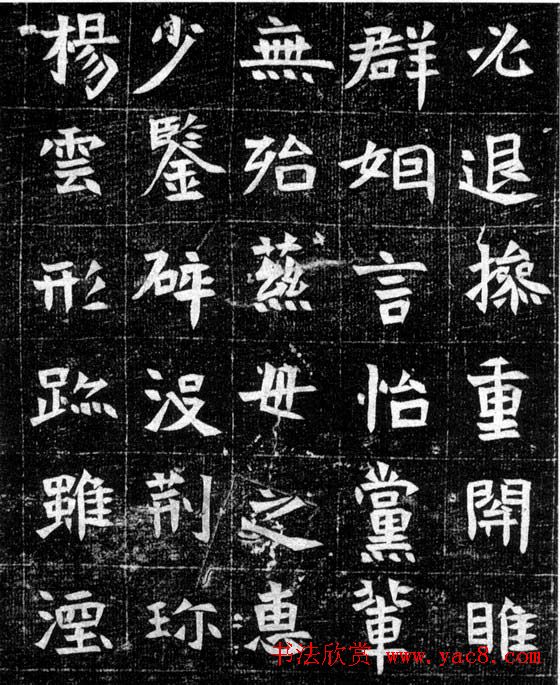 必退操重開睢
群姻言怡黨輩
無殆慈母之惠
少鑒碎没荆珎
楊雲形跡雖湮
书法欣赏 www.yac8.com